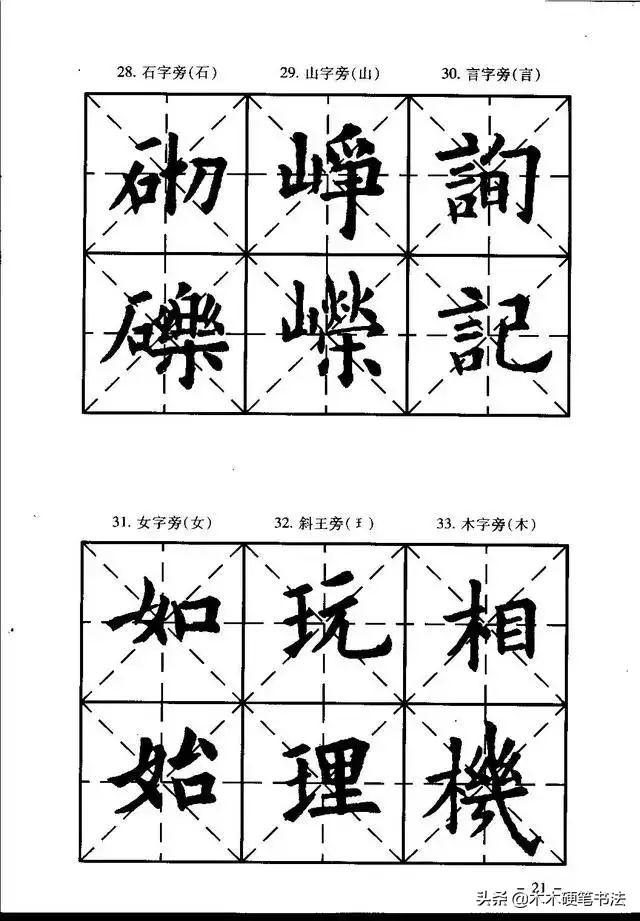 28. 石字旁(石) 29. 山字旁(山) 30. 言字旁(言)
砌 崢 詢
礫 嶸 記
31. 女字旁(女) 32. 斜王旁(𤣩) 33. 木字旁(木)
如 玩 相
始 理 機
- 21 -
头条 @木木硬笔书法